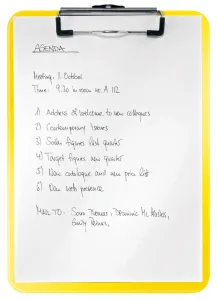 AGENDA
Meeting: 8 October
Time: 9.30 in room nr. A 112
1) Address of welcome to new colleagues
2) Contemporary Issues
3) Sales figures last quarter
4) Target figures new quarter
5) New catalogue and new price list
6) New web presence
MAIL TO: Sam Thomas, Dominic Mc
Emily